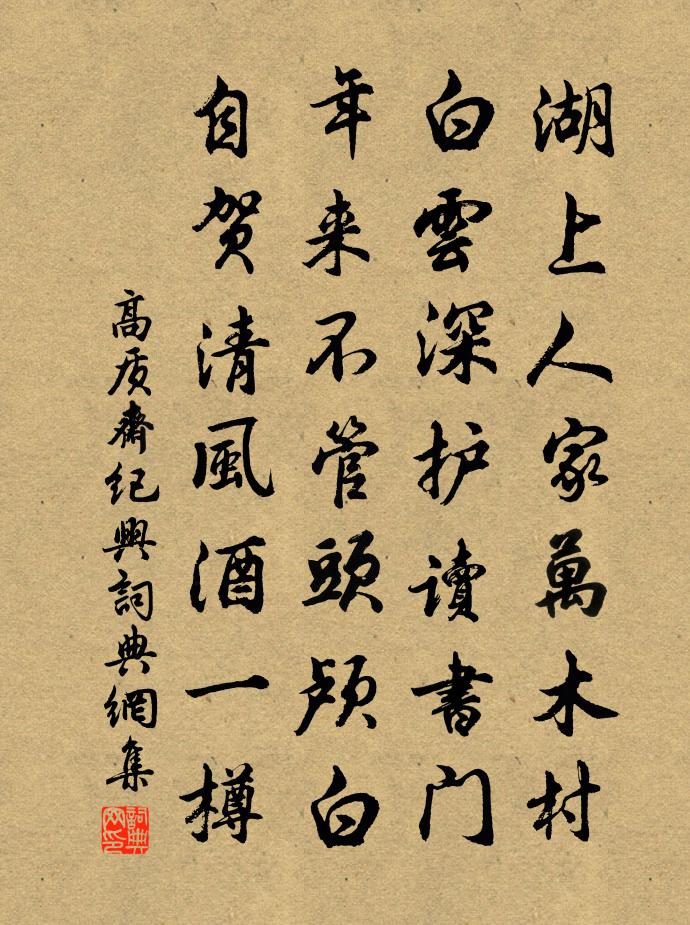 湖上人家萬木村
白雲深护讀書門
年来不管頭颅白
自贺清風酒一樽
高质齋紀興詞典網集
詞典
网印